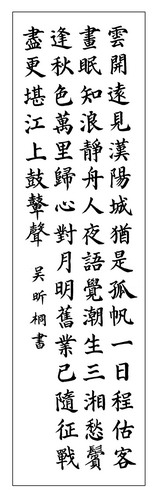 雲開遠見漢陽城猶是孤帆一日程估客
晝眠知浪靜舟人夜語覺潮生三湘愁鬢
逢秋色萬里歸心對月明舊業已隨征戰
盡更堪江上鼓鼙聲
吴昕桐書